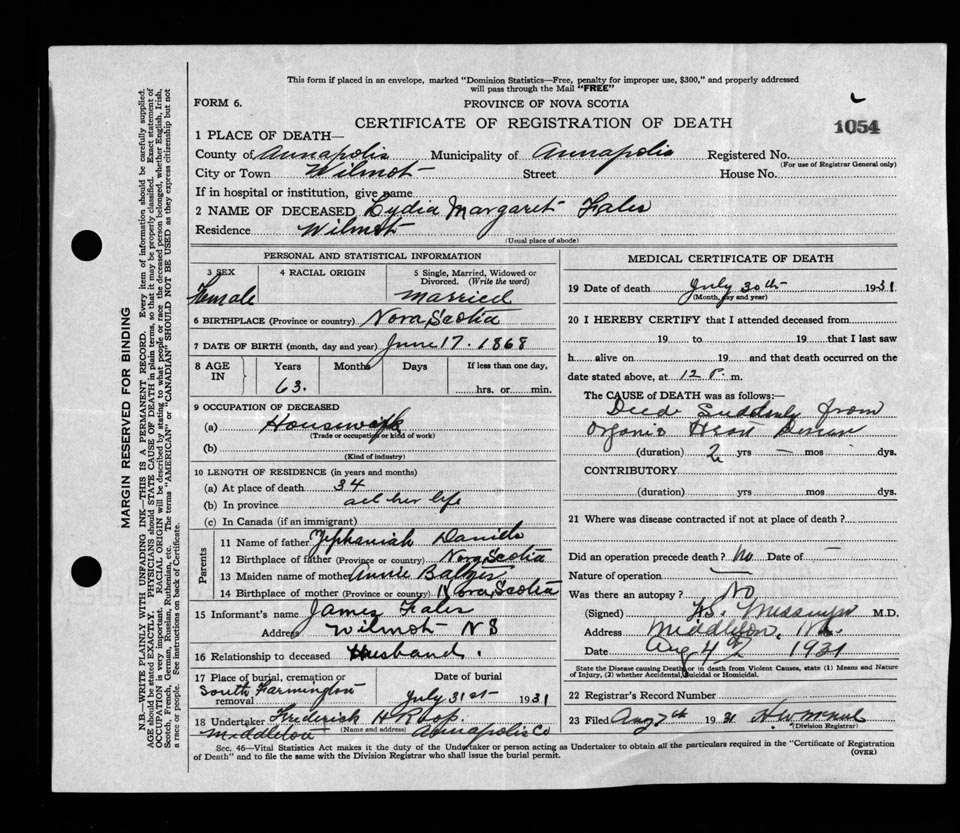 This form if placed in an envelope, marked "Dominion Statistics—Free, penalty for improper use, $300," and properly addressed
will pass through the Mail "FREE"
FORM 6.
PROVINCE OF NOVA SCOTIA
CERTIFICATE OF REGISTRATION OF DEATH
1054
1 PLACE OF DEATH—
County of Annapolis Municipality of Annapolis Registered No.
(For use of Registrar General only)
City or Town Wilmot Street House No.
If in hospital or institution, give name
2 NAME OF DECEASED Lydia Margaret Fales
Residence Wilmot
(Usual place of abode)
PERSONAL AND STATISTICAL INFORMATION
3 SEX 4 RACIAL ORIGIN 5 Single, Married, Widowed or
Divorced. (Write the word)
Female Married
6 BIRTHPLACE (Province or country) Nova Scotia
7 DATE OF BIRTH (month, day and year) June 17. 1868
8 AGE
IN
Years Months Days If less than one day,
63. hrs. or min.
9 OCCUPATION OF DECEASED
(a) Housewife
(Trade or occupation or kind of work)
(b)
(Kind of industry)
10 LENGTH OF RESIDENCE (in years and months)
(a) At place of death 34
(b) In province all her life
(c) In Canada (if an immigrant)
Parents
11 Name of father Zephaniah Daniels
12 Birthplace of father (Province or country) Nova Scotia
13 Maiden name of mother Annie Balzer
14 Birthplace of mother (Province or country) Nova Scotia
15 Informant's name James Fales
Address Wilmot N S
16 Relationship to deceased Husband.
17 Place of burial, cremation or
removal
Date of burial
South Farmington July 31st 1931
18 Undertaker Frederick H Roop.
(Name and address)
Middleton Annapolis Co
MEDICAL CERTIFICATE OF DEATH
19 Date of death July 30th 1931
(Month, day and year)
20 I HEREBY CERTIFY that I attended deceased from
19 to 19 that I last saw
h alive on 19 and that death occurred on
date stated above, at 12 P. m.
The CAUSE of DEATH was as follows:—
Died Suddenly from
Organic Heart Disease
(duration) 2 yrs — mos dys.
CONTRIBUTORY
(duration) yrs mos dys.
21 Where was disease contracted if not at place of death?
Did an operation precede death? No Date of —
Nature of operation —
Was there an autopsy? No
(Signed) M.D.
Address Middleton, N.S.
Date Aug 4th 1931
State the Disease causing Death, or in death from Violent Causes, state (1) Means and Nature
of Injury, (2) whether Accidental, Suicidal or Homicidal.
22 Registrar's Record Number
23 Filed Aug 7th 1931
(Division Registrar)
Sec. 46—Vital Statistics Act makes it the duty of the Undertaker or person acting as Undertaker to obtain all the particulars required in the "Certificate of Registration
of Death" and to file the same with the Division Registrar who shall issue the burial permit. (OVER)
MARGIN RESERVED FOR BINDING
N.B.—WRITE PLAINLY WITH UNFADING INK—THIS IS A PERMANENT RECORD. Every item of information should be carefully supplied.
AGE should be stated EXACTLY. PHYSICIANS should STATE CAUSE OF DEATH in plain terms, so that it may be properly classified. Exact statement of
OCCUPATION is very important. RACIAL ORIGIN will be described by stating to what people or race the deceased person belonged, whether English, Irish,
Scotch, French, German, Russian, Ruthenian, etc. The terms "AMERICAN" or "CANADIAN" SHOULD NOT BE USED as they express citizenship but not
a race or people. See instructions on back of Certificate.